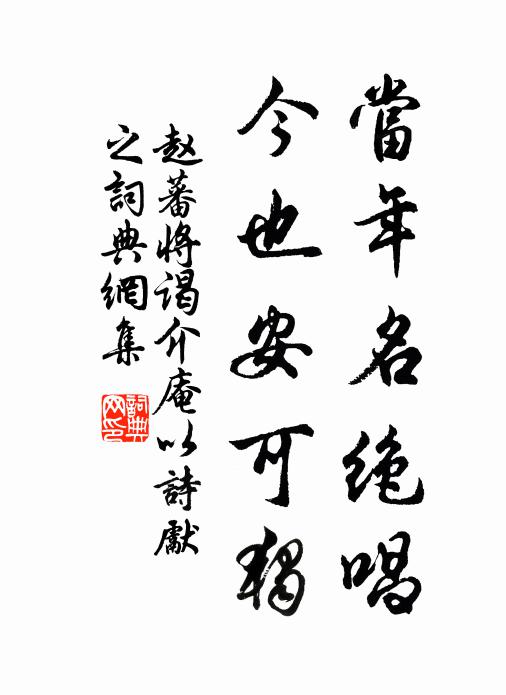 當年名絶唱
今也安可獨
赵蕃將谒介庵以詩獻
之詞典網集
詞典網印